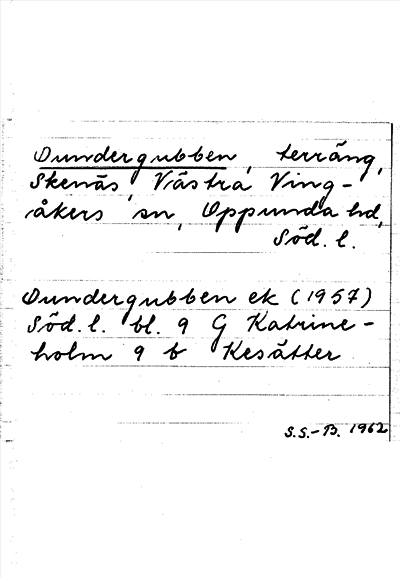 Dundergubben, terräng,
Skenäs, Västra Ving-
åkers sn, Oppunda hd,
Söd. l.
Dundergubben ek (1957)
Söd. l. bl. 9 G Katrine-
holm 9 b Kesätter
S.S.-B. 1962